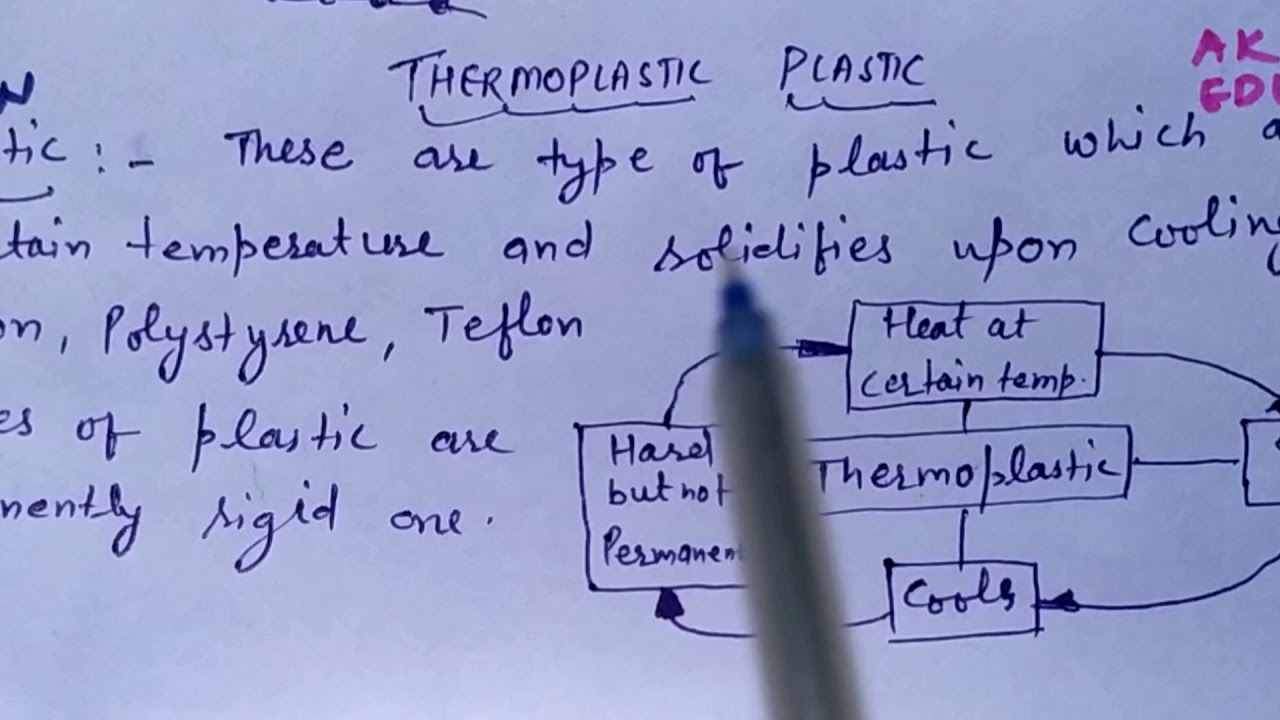 THERMOPLASTIC PLASTIC
AK
EDU
tic :- These are type of plastic which a
tain temperature and solidifies upon cooling
on, Polystyrene, Teflon
es of plastic are
nently rigid one.
Heat at
certain temp.
Hard
but not
Permanent
Thermoplastic
Cools